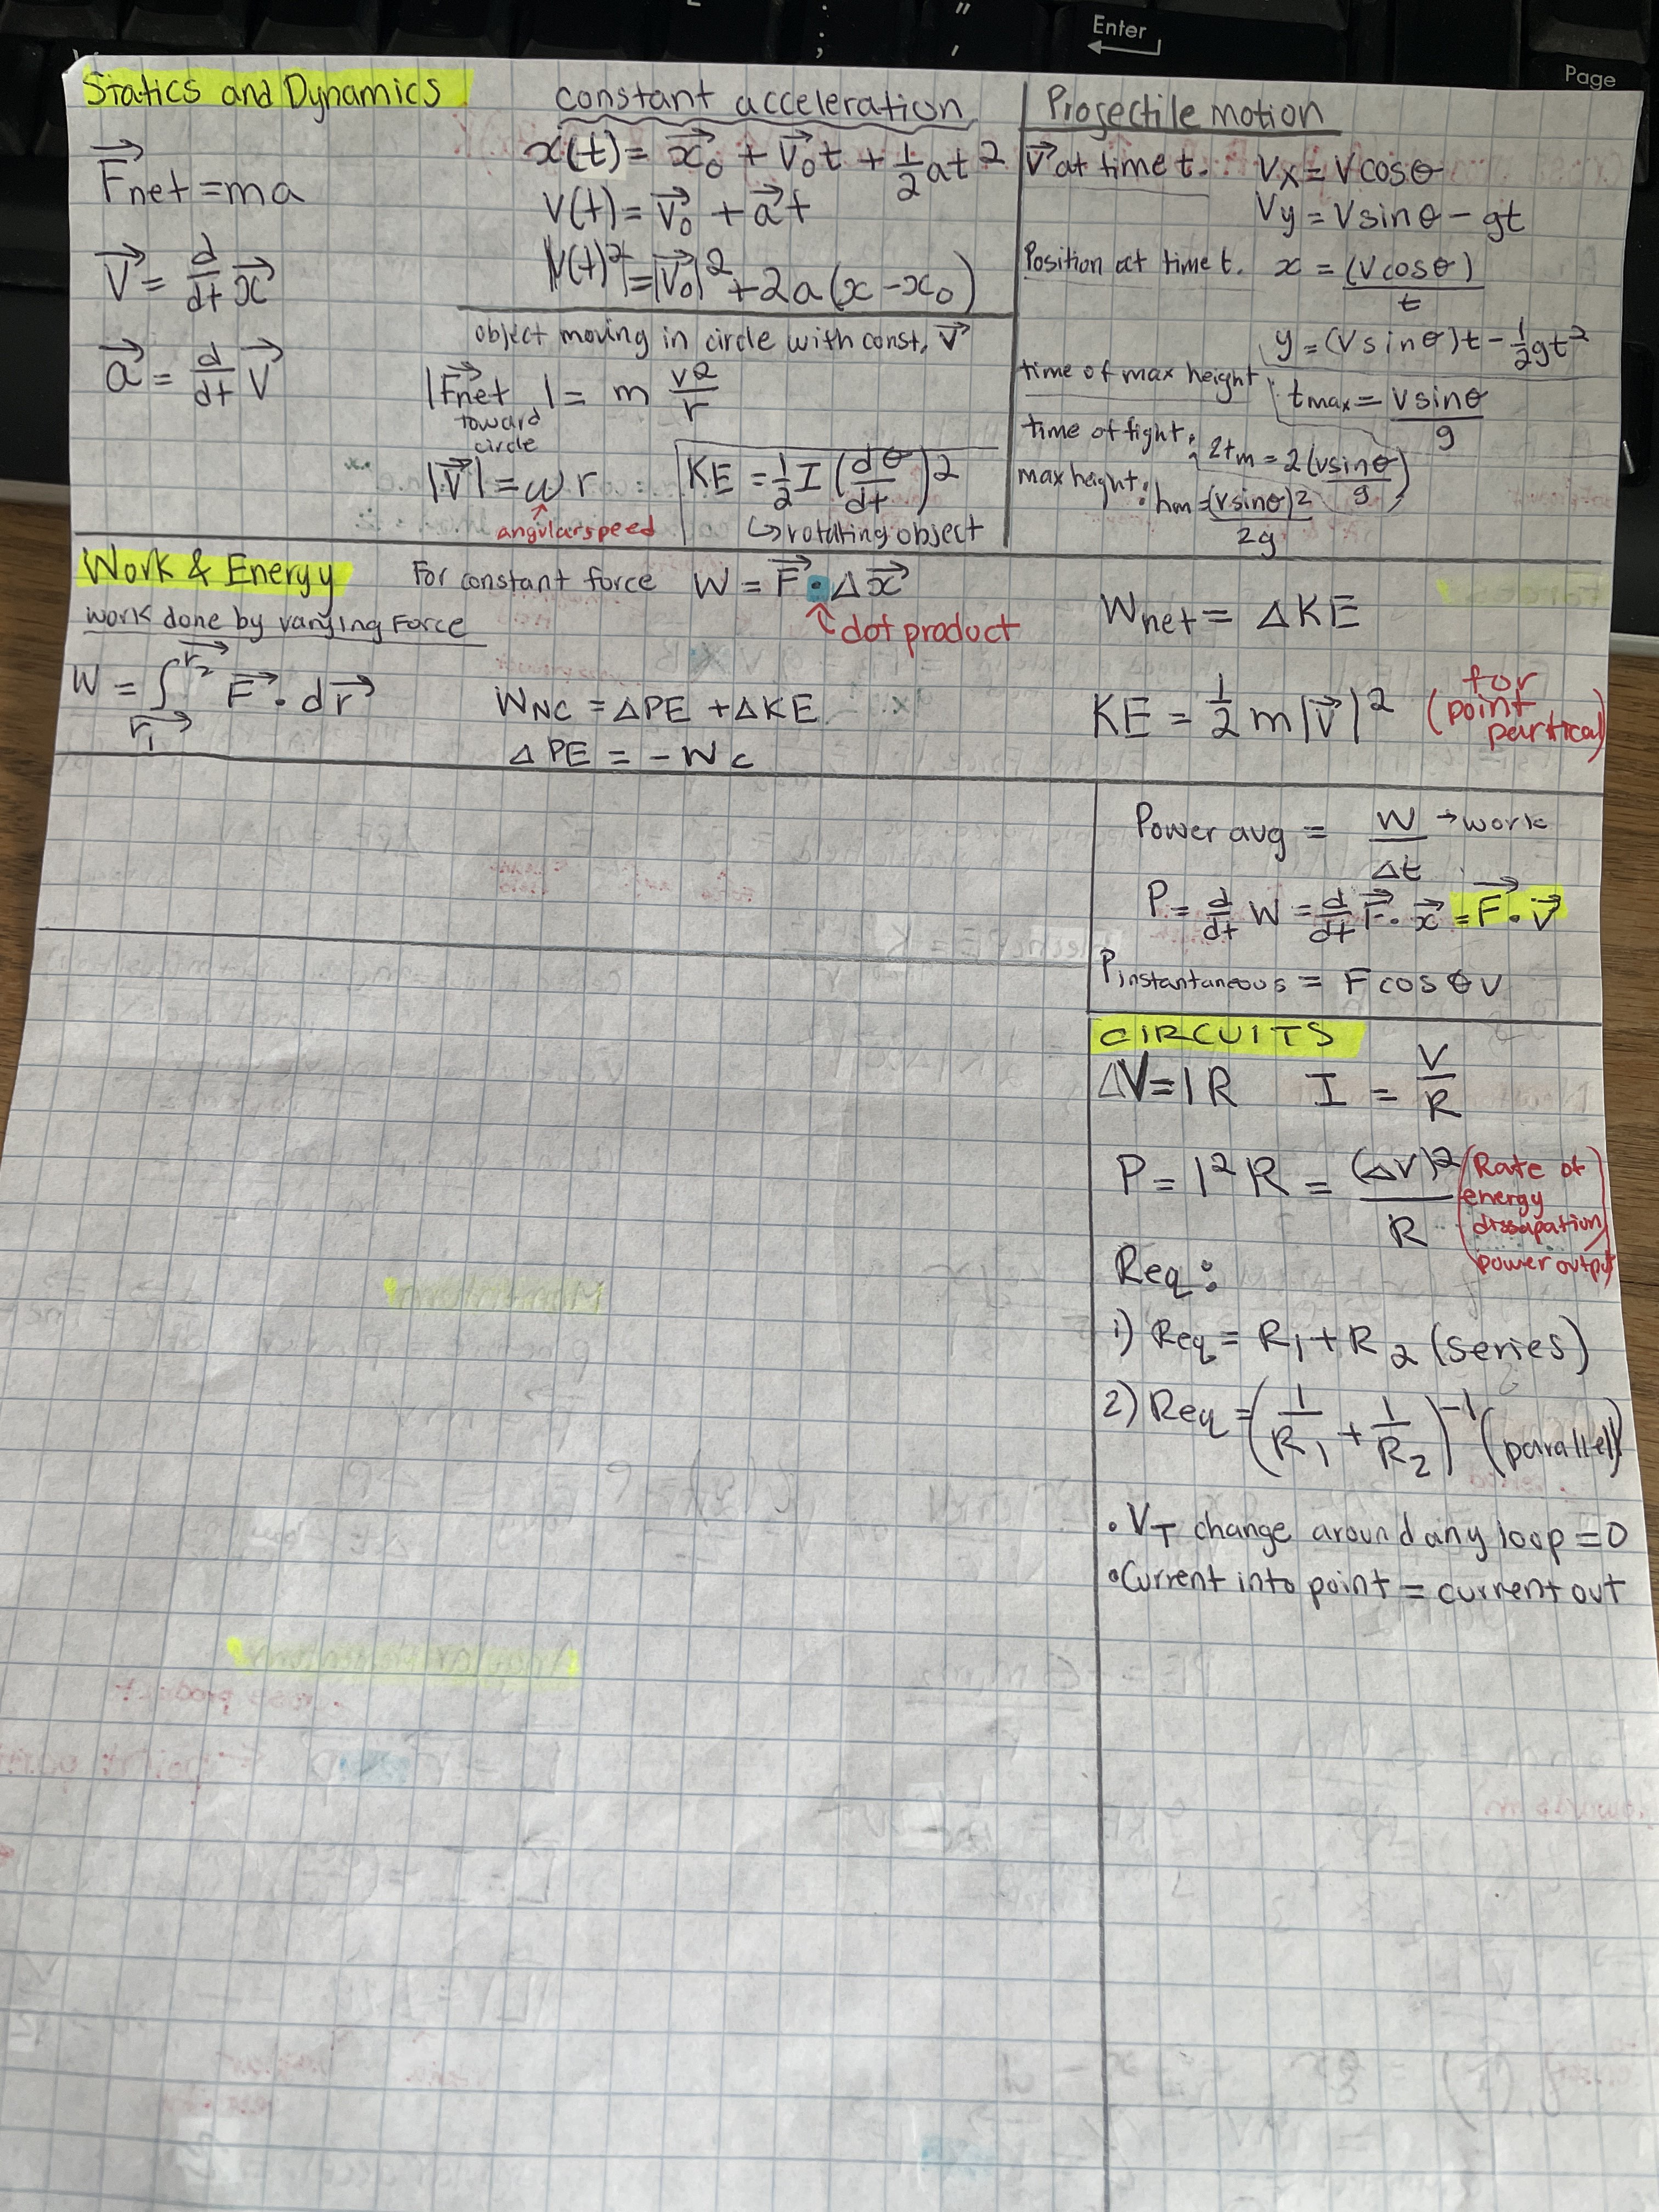 Enter
Page
Statics and Dynamics
F⃗net = ma
V⃗ = d/dt x⃗
a⃗ = d/dt V⃗
constant acceleration
x(t) = x⃗₀ + V⃗₀t + 1/2 at²
V(t) = V⃗₀ + a⃗t
|V(t)²| = |V⃗₀|² + 2a(x - x₀)
object moving in circle with const. V⃗
|F⃗net| = m v²/r
toward
circle
|V⃗| = ωr
angular speed
KE = 1/2 I (dθ/dt)²
↪ rotating object
Projectile motion
V⃗ at time t. Vx = V cosθ
Vy = V sinθ - gt
Position at time t. x = (V cosθ)/t
y = (V sinθ)t - 1/2 gt²
time of max height: tmax = V sinθ/g
time of fight: 2tm = 2(V sinθ/g)
max height: hm = (V sinθ)²/2g
Work & Energy
For constant force W = F⃗ • Δx⃗
dot product
Wnet = ΔKE
work done by varying Force
W = ∫ r⃗₁ r⃗₂ F⃗ • dr⃗
WNC = ΔPE + ΔKE
ΔPE = -Wc
KE = 1/2 m|V⃗|² (for point partical)
Power avg = W/Δt → work
P = d/dt W = d/dt F⃗ • x⃗ = F⃗ • V⃗
Pinstantaneous = F cos θ V
CIRCUITS
ΔV = IR I = V/R
P = I²R = (ΔV)²/R
(Rate of
energy
dissapation
power output)
Req:
1) Req = R₁ + R₂ (series)
2) Req = (1/R₁ + 1/R₂)⁻¹ (parallel)
• VT change around any loop = 0
• Current into point = current out